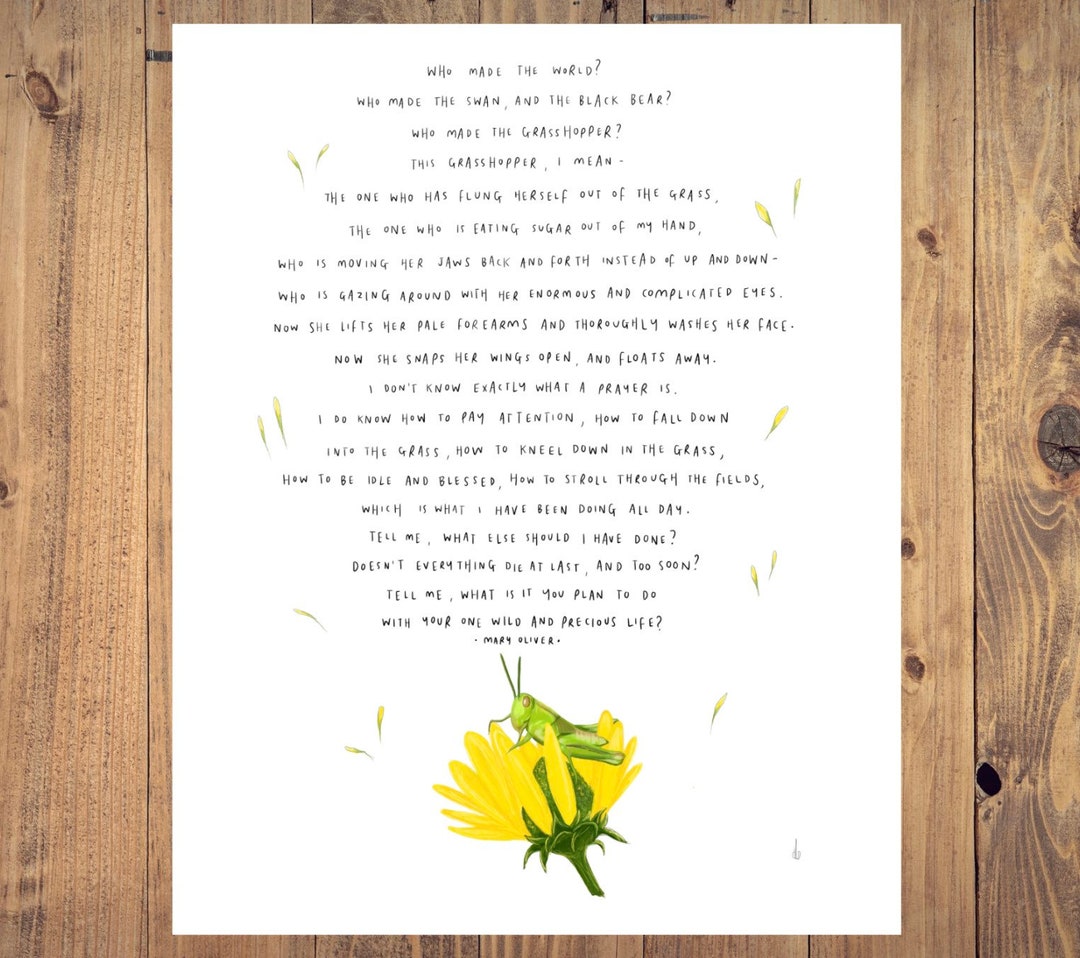 WHO MADE THE WORLD?
WHO MADE THE SWAN, AND THE BLACK BEAR?
WHO MADE THE GRASSHOPPER?
THIS GRASSHOPPER, I MEAN-
THE ONE WHO HAS FLUNG HERSELF OUT OF THE GRASS,
THE ONE WHO IS EATING SUGAR OUT OF MY HAND,
WHO IS MOVING HER JAWS BACK AND FORTH INSTEAD OF UP AND DOWN-
WHO IS GAZING AROUND WITH HER ENORMOUS AND COMPLICATED EYES.
NOW SHE LIFTS HER PALE FOREARMS AND THOROUGHLY WASHES HER FACE.
NOW SHE SNAPS HER WINGS OPEN, AND FLOATS AWAY.
I DON'T KNOW EXACTLY WHAT A PRAYER IS.
I DO KNOW HOW TO PAY ATTENTION, HOW TO FALL DOWN
INTO THE GRASS, HOW TO KNEEL DOWN IN THE GRASS,
HOW TO BE IDLE AND BLESSED, HOW TO STROLL THROUGH THE FIELDS,
WHICH IS WHAT I HAVE BEEN DOING ALL DAY.
TELL ME, WHAT ELSE SHOULD I HAVE DONE?
DOESN'T EVERYTHING DIE AT LAST, AND TOO SOON?
TELL ME, WHAT IS IT YOU PLAN TO DO
WITH YOUR ONE WILD AND PRECIOUS LIFE?
• MARY OLIVER •